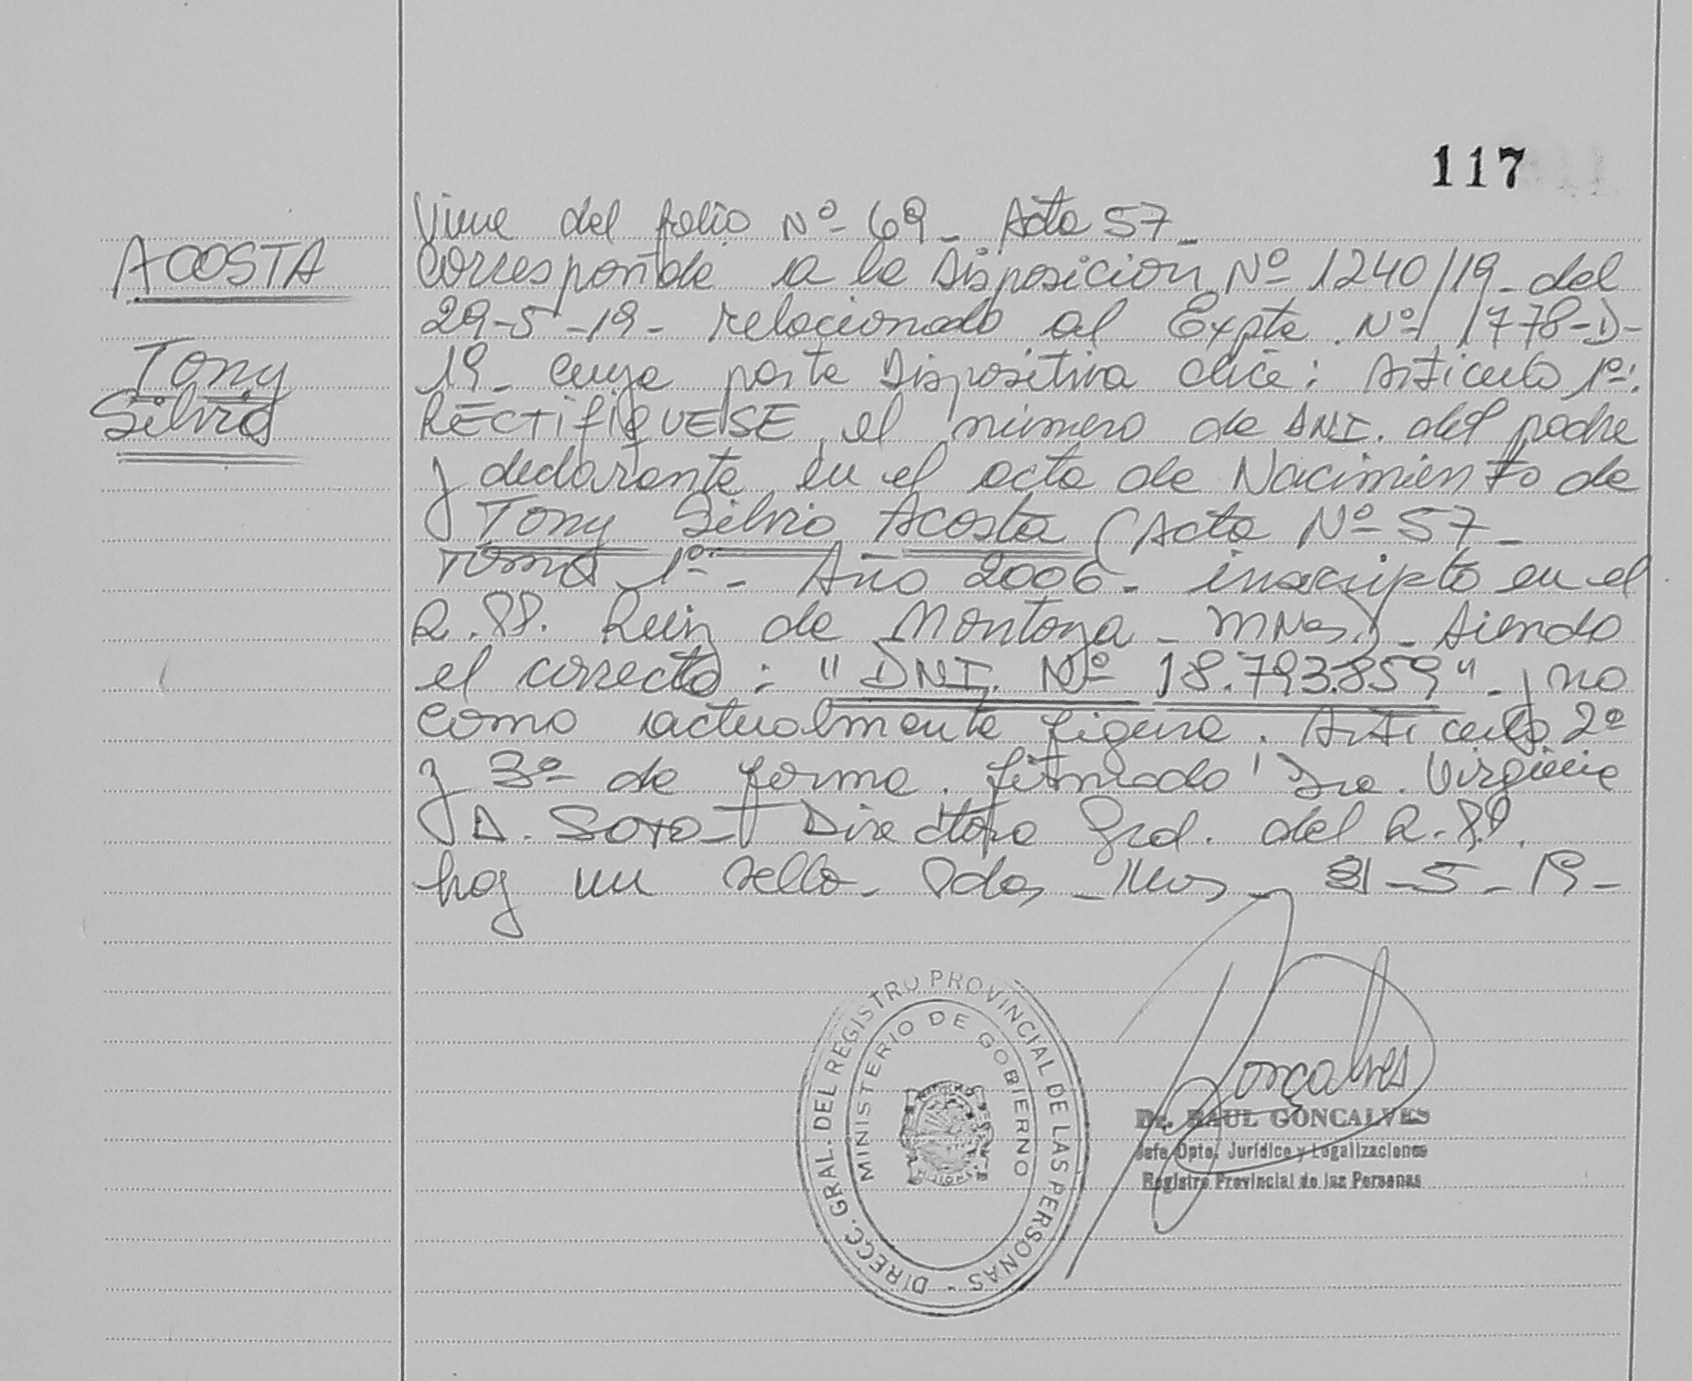 117
Viene del folio Nº 69- Acta 57-
ACOSTA
Corresponde a la Disposición Nº 1240/19- del
29-5-19- relacionado al Expte. Nº 1778-D-
Tony
19- cuya parte Dispositiva dice: Artículo 1º:
Silvio
RECTIFIQUESE el número de DNI. del padre
y declarante en el acta de Nacimiento de
Tony Silvio Acosta (Acta Nº 57-
Tomo 1º- Año 2006- inscripto en el
R.PP. Ruiz de Montoya - Mnes)- siendo
el correcto: "DNI. Nº 18.793.859"- y no
como actualmente figura. Artículo 2º
y 3º de forma. firmado Dra. Virginia
A. Soto- Directora Gral. del R.PP.
hay un sello- Pdas - Mnes - 31-5-19-
DIRECC. GRAL. DEL REGISTRO PROVINCIAL DE LAS PERSONAS -
MINISTERIO DE GOBIERNO
MISIONES
Goncalves
Dr. RAUL GONCALVES
Jefe Dpto. Jurídico y Legalizaciones
Registro Provincial de las Personas